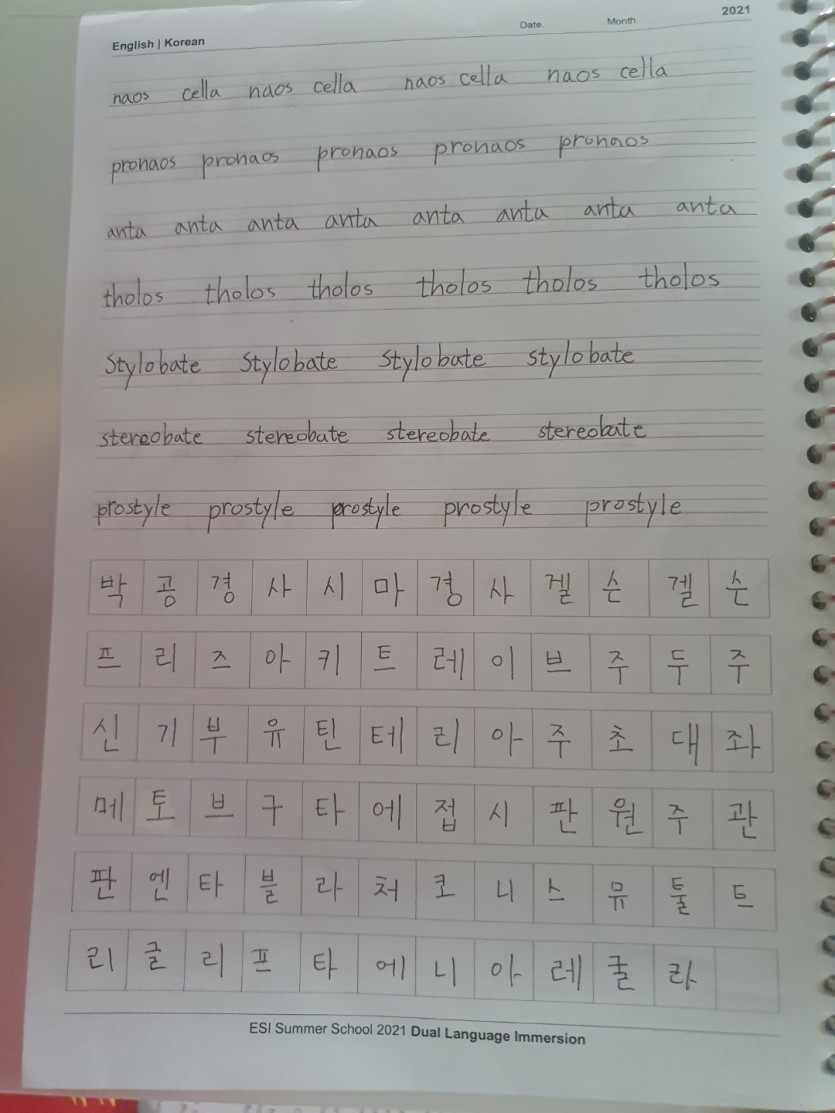 English | Korean Date. Month. 2021
naos cella naos cella naos cella naos cella
pronaos pronaos pronaos pronaos pronaos
anta anta anta anta anta anta anta anta
tholos tholos tholos tholos tholos tholos
Stylobate Stylobate Stylobate stylobate
stereobate stereobate stereobate stereobate
prostyle prostyle prostyle prostyle prostyle
박 공 경 사 시 마 경 사 겔 슨 겔 슨
프 리 즈 아 키 트 레 이 브 주 두 주
신 기 부 유 틴 테 리 아 주 초 대 좌
메 토 브 구 타 에 접 시 판 원 주 관
판 엔 타 블 라 처 코 니 스 뮤 툴 트
리 글 리 프 타 에 니 아 레 굴 라
ESI Summer School 2021 Dual Language Immersion